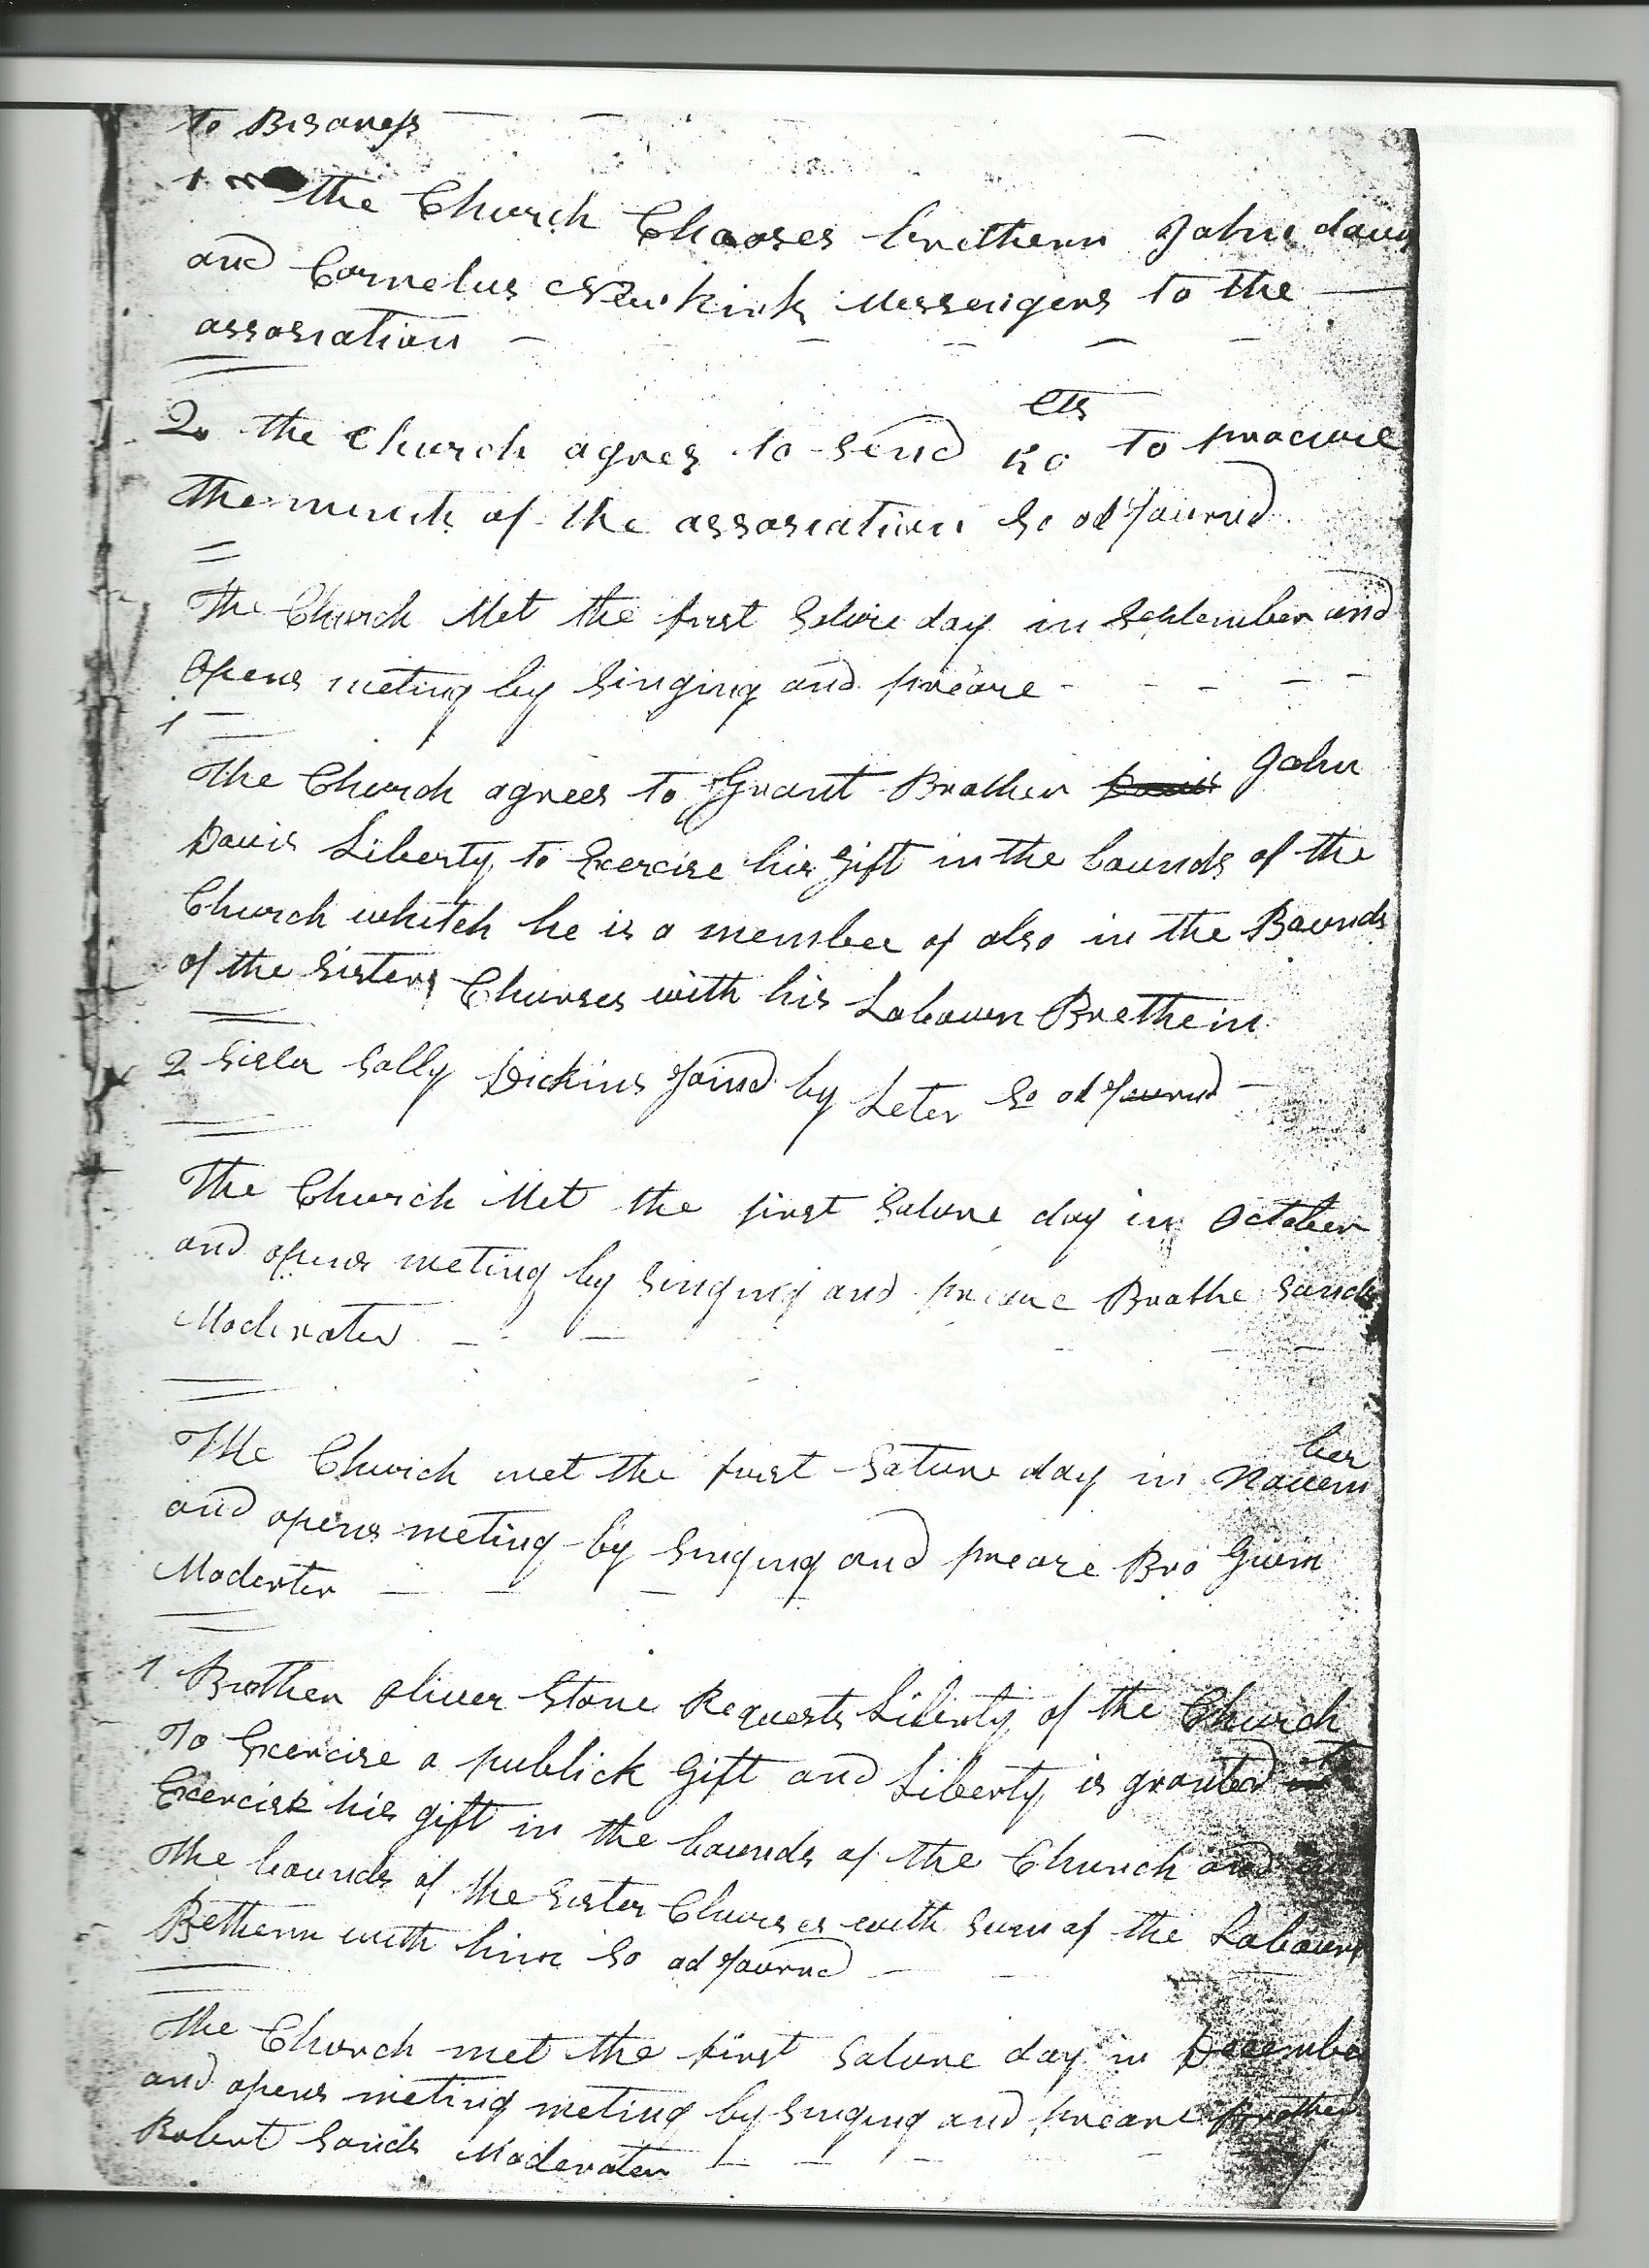 to Bisaness
1 the Church Chooses brethern John davis
and Cornelus Newkirk Messengers to the
assosiation
cts
2 the Church agres to send 50 to procure
the minits of the assosiation So adjournd
The Church Met the first Sature day in September and
Opens meting by Singing and preare
1
The Church agrees to Grant Brother Davis John
Davis Liberty to Exercise his Gift in the bounds of the
Church whitch he is a member of also in the Bounds
of the Sisters Churses with his Labouren Brethein
2 Sister Sally Dickins Joind by Leter So adjournd
The Church Met the first Sature day in October
and opens meting by Singing and preare Brothe Sands
Moderater
ber
The Church met the first Sature day in Novem
and opens meting by Singing and preare Bro Guin
Moderter
1 Brother Oliver Stone Requests Liberty of the Church
To Exercise a publick Gift and Liberty is granted
Exercise his gift in the bounds of the Church and in
the bounds of the Sister Churses with sum of the Labouren
Bethern with him So adjournd
The Church met the first Sature day in December
and opens meting meting by Singing and preare Brother
Robert Sands Moderater